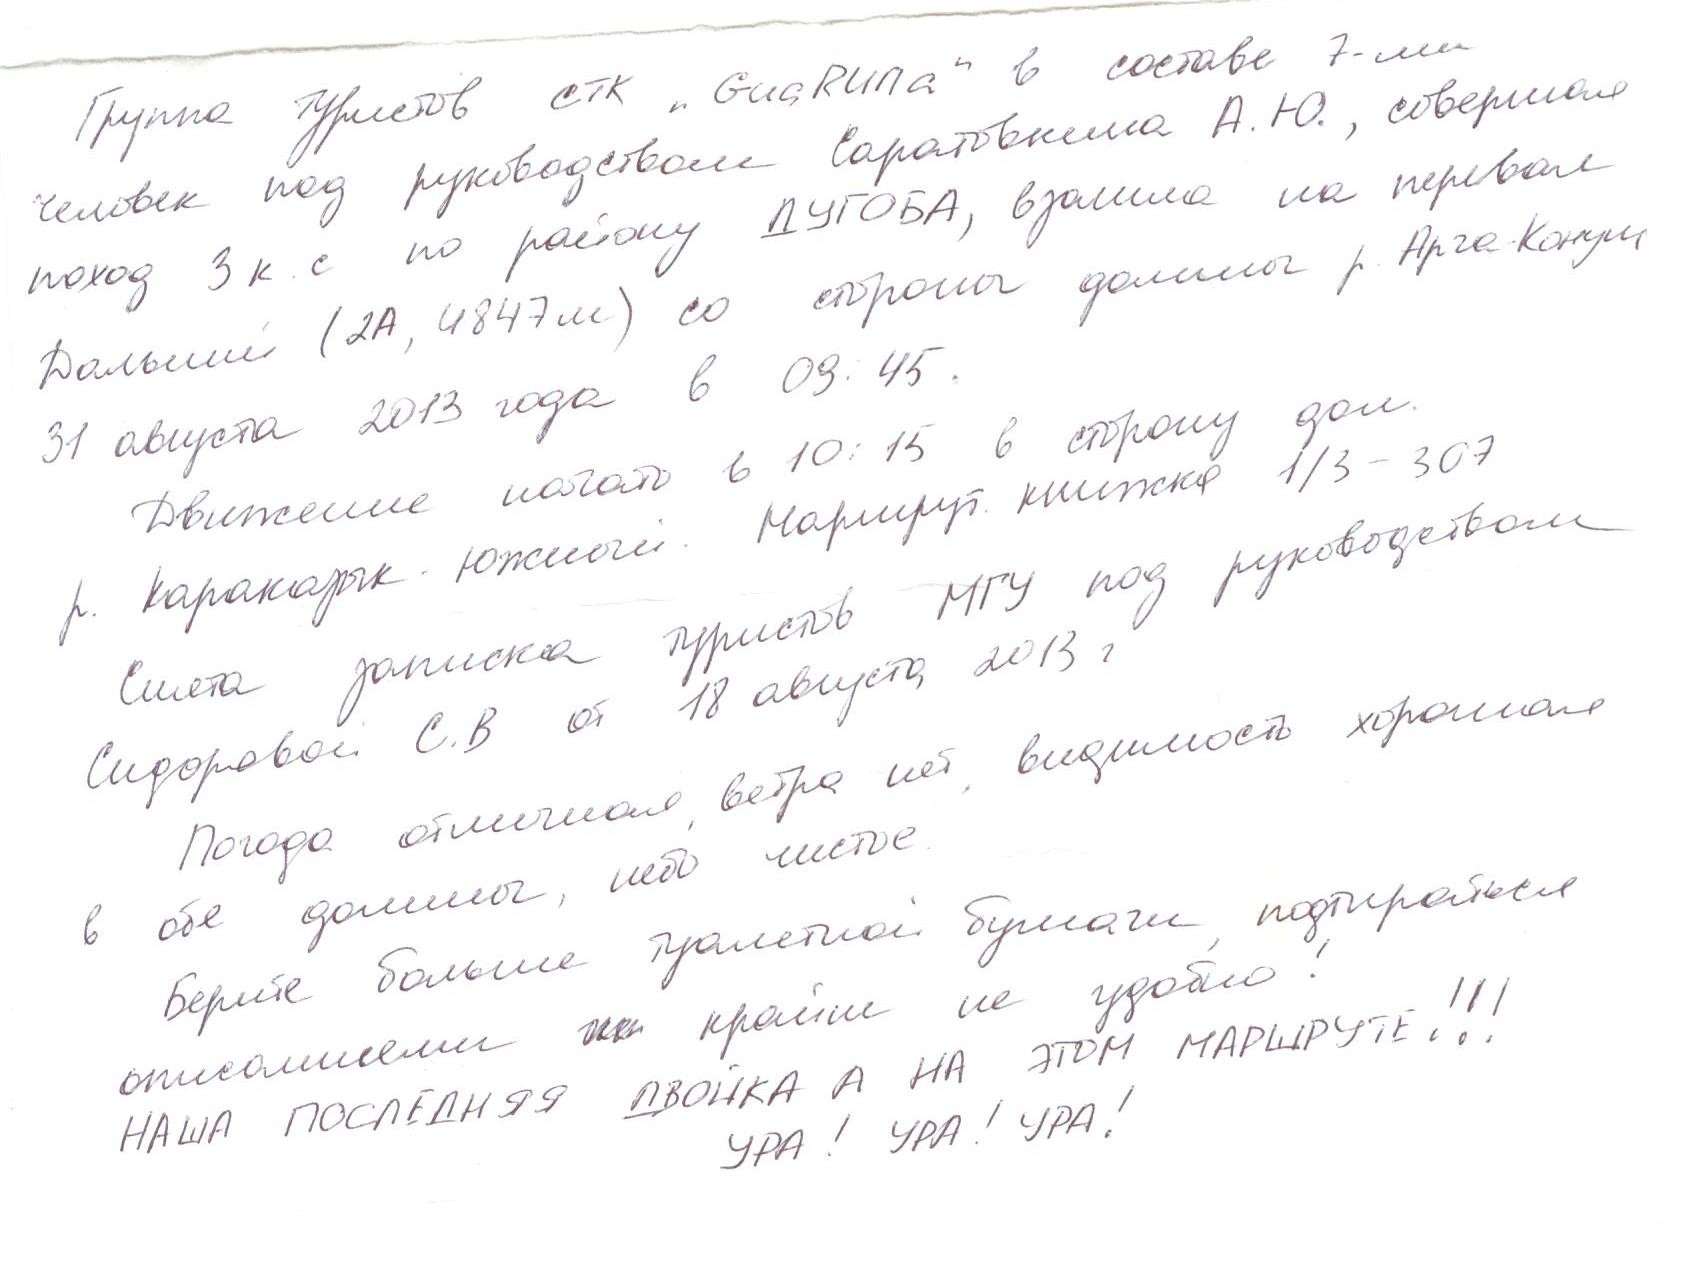 Группа туристов СТК „GuaRUПa“ в составе 7-ми
человек под руководством Саратовкина А.Ю., совершая
поход 3 к.с по району ДУГОБА, взошла на перевал
Дальний (2А, 4847м) со стороны долины р. Арча-Каныш
31 августа 2013 года в 09:45.
Движение начато в 10:15 в сторону дол.
р. Караказык-Южный. Маршрут. книжка 1/3-307
Снята записка туристов МГУ под руководством
Сидоровой С.В от 18 августа 2013 г
Погода отличная, ветра нет, видимость хорошая
в обе долины, небо чистое.
Берите больше туалетной бумаги, подтираться
описанием крайне не удобно!
НАША ПОСЛЕДНЯЯ ДВОЙКА А НА ЭТОМ МАРШРУТЕ!!!
УРА! УРА! УРА!